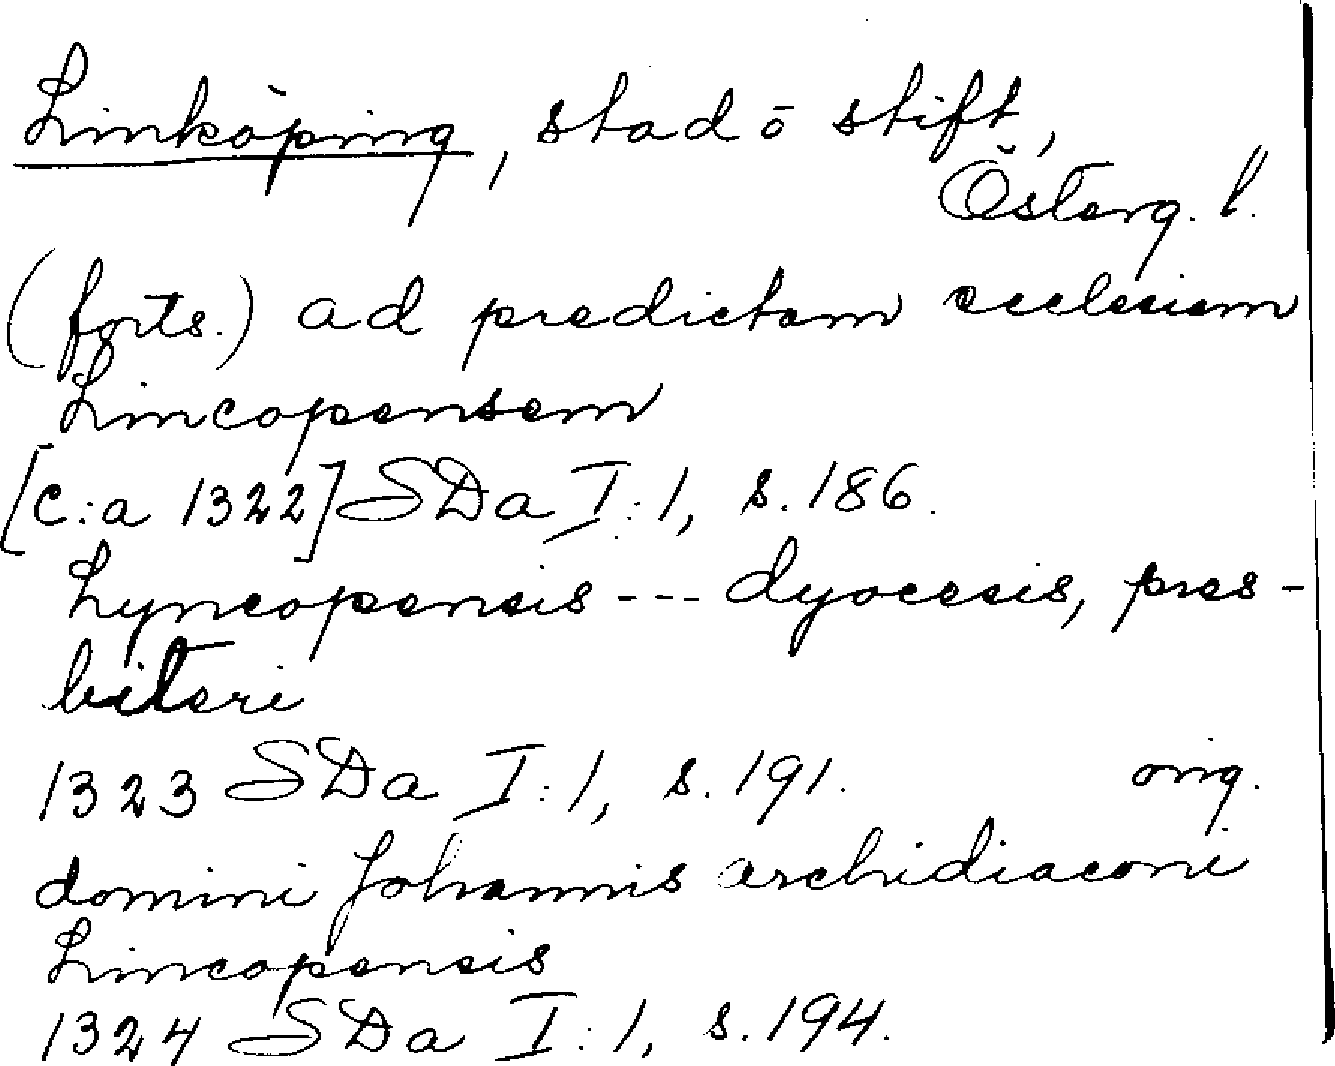 Linköping, stad ō stift,
Österg. l.
(forts.) ad predictam ecclesiam
Lincopensem
[c:a 1322] SDa I:1, s. 186.
Lyncopensis --- dyocesis, pres-
biteri
1323 SDa I:1, s. 191. orig.
domini Johannis archidiaconi
Lincopensis
1324 SDa I:1, s. 194.